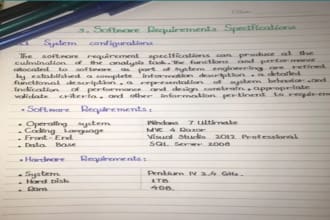 3. Software Requirements Specifications
System configurations
The software requirement specifications can produce at the
culmination of the analysis task. The function and performance
allocated to software as a part of system engineering are refined
by established a complete information description, a detailed
functional description, a representation of system behavior and
indication of performance and design constrain, appropriate
validate criteria, and other information pertinent to requirem
• Software Requirements:
• Operating system Windows 7 Ultimate
• Coding Language MVC 4 Razor
• Front-End Visual Studio 2012 Professional
• Data Base SQL Server 2008
• Hardware Requirements:
• System Pentium IV 2.4 GHz.
• Hard Disk 1TB
• Ram 4GB.